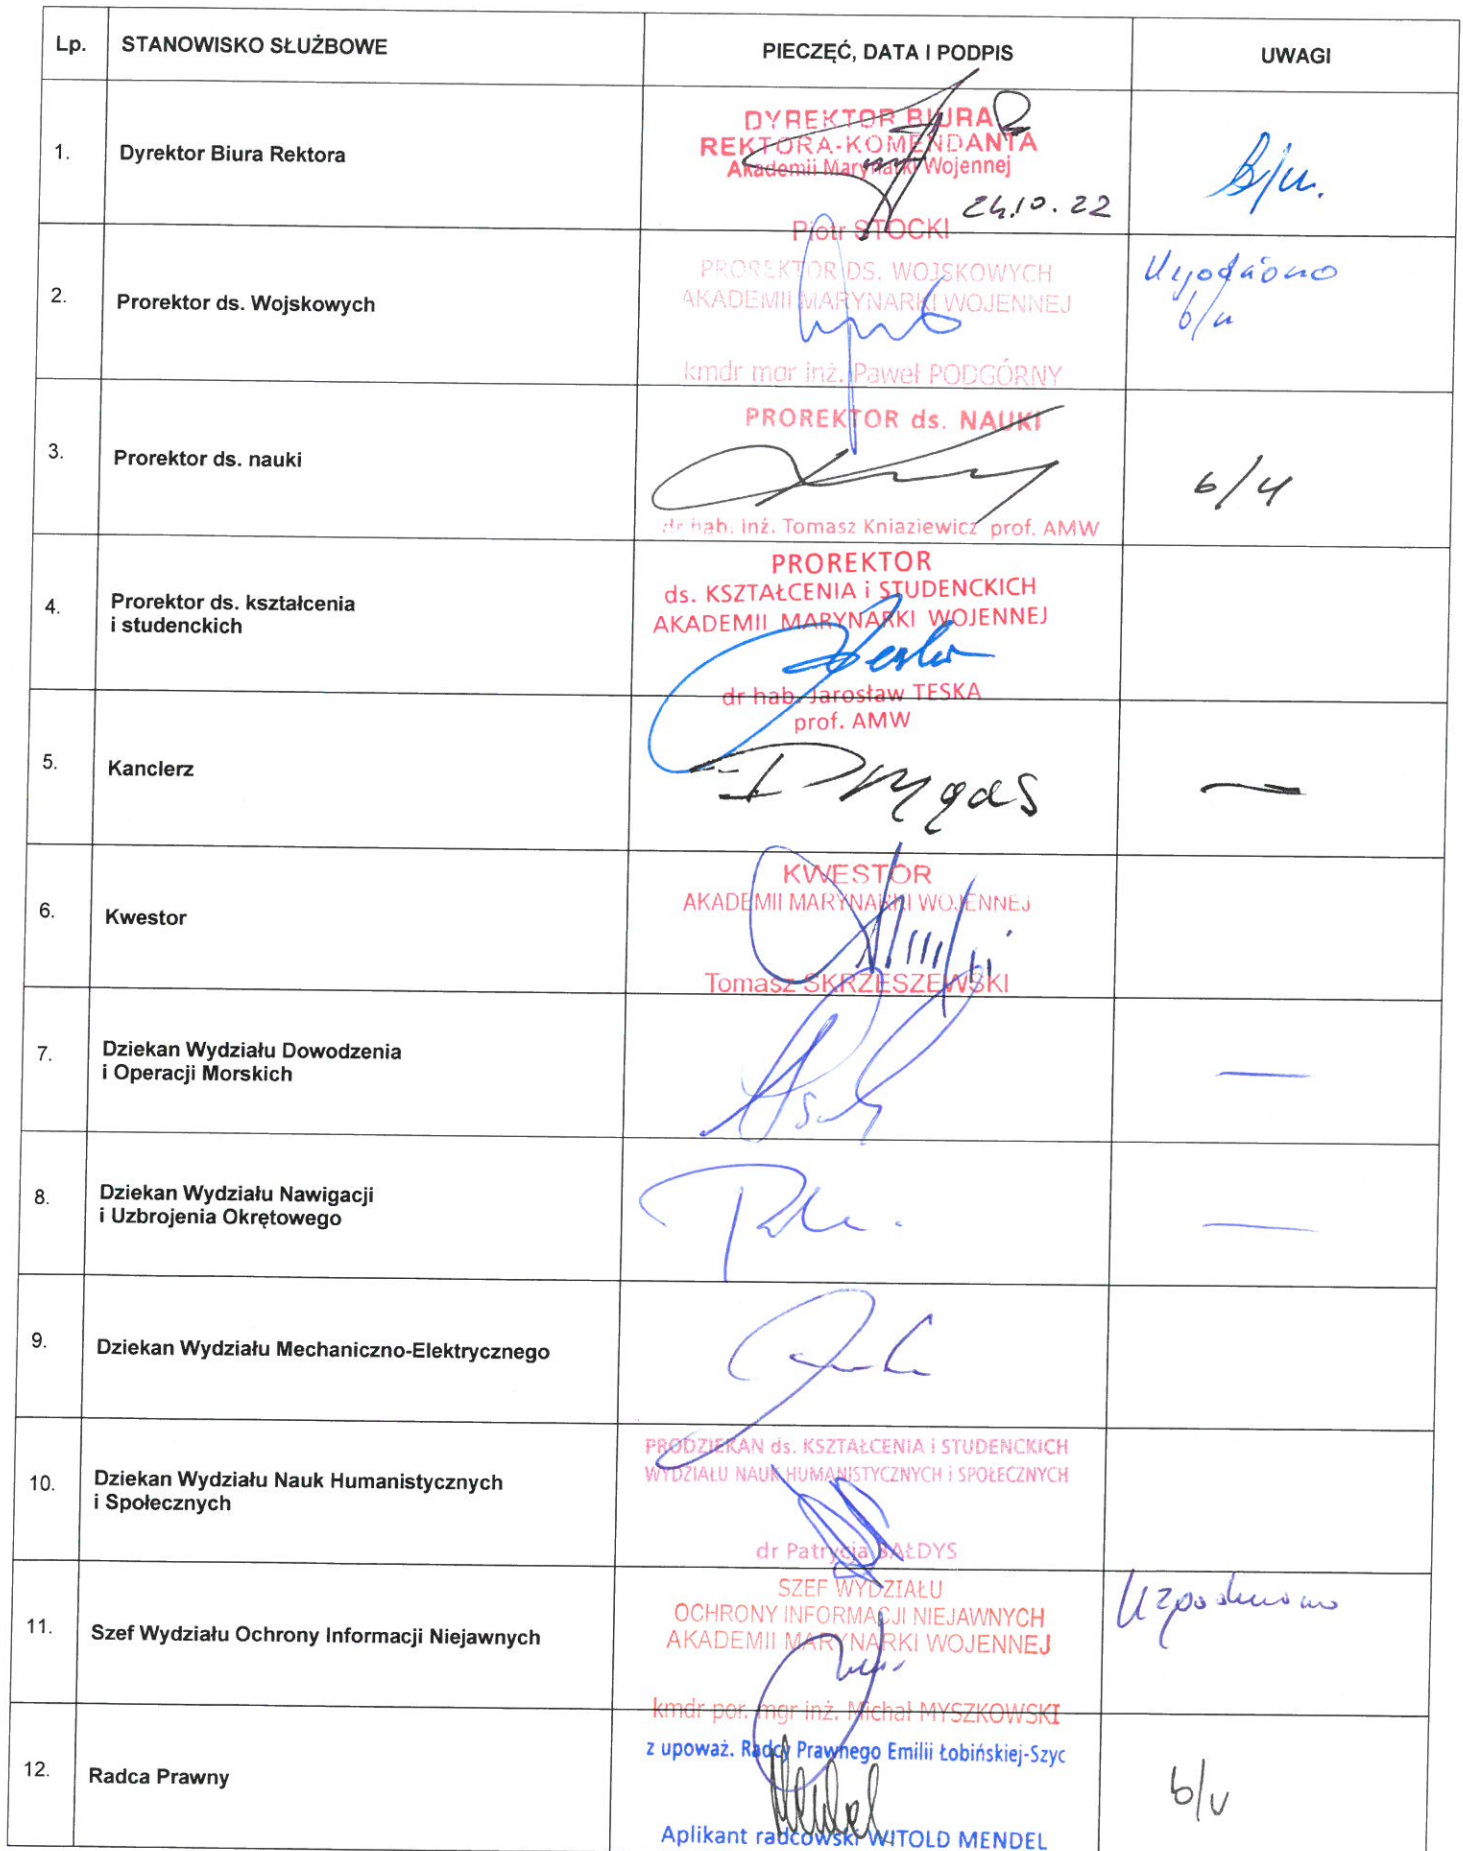 Lp. STANOWISKO SŁUŻBOWE PIECZĘĆ, DATA I PODPIS UWAGI
1. Dyrektor Biura Rektora
DYREKTOR BIURA
REKTORA-KOMENDANTA
Akademii Marynarki Wojennej
24.10.22
Piotr STOCKI
b/u.
2. Prorektor ds. Wojskowych
PROREKTOR DS. WOJSKOWYCH
AKADEMII MARYNARKI WOJENNEJ
kmdr mgr inż. Paweł PODGÓRNY
Uzgodniono
b/u
3. Prorektor ds. nauki
PROREKTOR ds. NAUKI
dr hab. inż. Tomasz Kniaziewicz prof. AMW
b/u
4. Prorektor ds. kształcenia
i studenckich
PROREKTOR
ds. KSZTAŁCENIA i STUDENCKICH
AKADEMII MARYNARKI WOJENNEJ
dr hab. Jarosław TESKA
prof. AMW
5. Kanclerz
—
6. Kwestor
KWESTOR
AKADEMII MARYNARKI WOJENNEJ
Tomasz SKRZESZEWSKI
7. Dziekan Wydziału Dowodzenia
i Operacji Morskich
—
8. Dziekan Wydziału Nawigacji
i Uzbrojenia Okrętowego
—
9. Dziekan Wydziału Mechaniczno-Elektrycznego
10. Dziekan Wydziału Nauk Humanistycznych
i Społecznych
PRODZIEKAN ds. KSZTAŁCENIA i STUDENCKICH
WYDZIAŁU NAUK HUMANISTYCZNYCH i SPOŁECZNYCH
dr Patrycja BAŁDYS
11. Szef Wydziału Ochrony Informacji Niejawnych
SZEF WYDZIAŁU
OCHRONY INFORMACJI NIEJAWNYCH
AKADEMII MARYNARKI WOJENNEJ
kmdr por. mgr inż. Michał MYSZKOWSKI
Uzgodniono
12. Radca Prawny
z upoważ. Radcy Prawnego Emilii Łobińskiej-Szyc
Aplikant radcowski WITOLD MENDEL
b/u